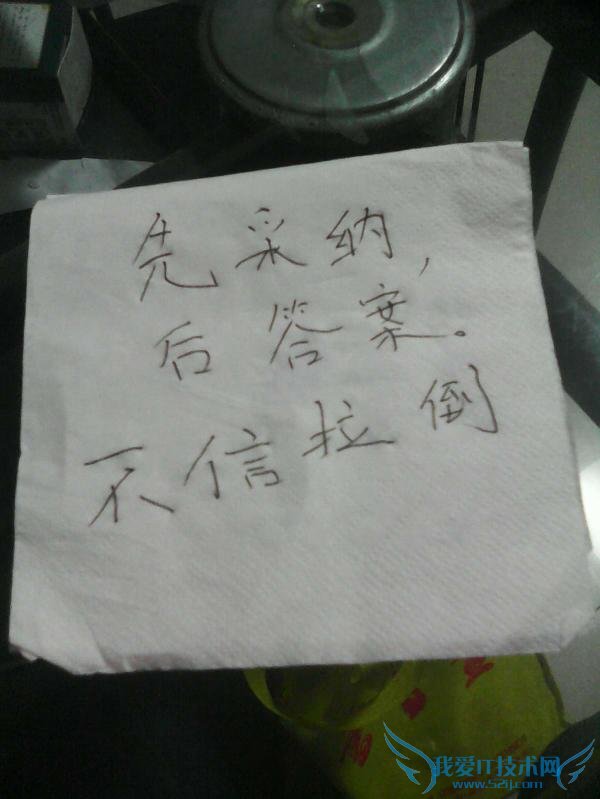 先采纳,
后答案。
不信拉倒
我爱IT技术网
www.52ij.com